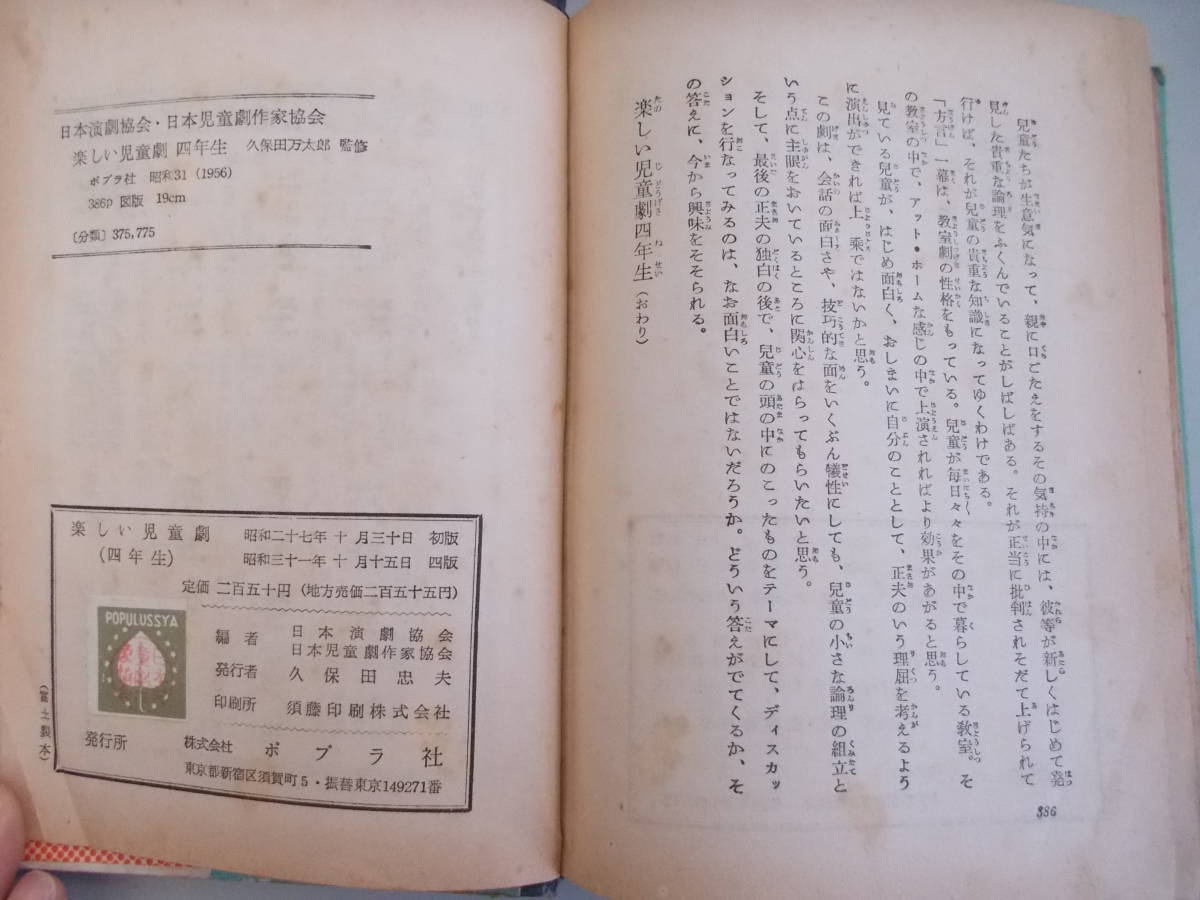 児童たちが生意気になって、親に口ごたえをするその気持の中には、彼等が新しくはじめて発
見した貴重な論理をふくんでいることがしばしばある。それが正当に批判されそだて上げられて
行けば、それが児童の貴重な知識になってゆくわけである。
「方言」一幕は、教室劇の性格をもっている。児童が毎日々々をその中で暮らしている教室。そ
の教室の中で、アット・ホームな感じの中で上演されればより効果があがると思う。
見ている児童が、はじめ面白く、おしまいに自分のこととして、正夫のいう理屈を考えるよう
に演出ができれば上乗ではないかと思う。
この劇は、会話の面白さや、技巧的な面をいくぶん犠性にしても、児童の小さな論理の組立と
いう点に主眼をおいているところに関心をはらってもらいたいと思う。
そして、最後の正夫の独白の後で、児童の頭の中にのこったものをテーマにして、ディスカッ
ションを行なってみるのは、なお面白いことではないだろうか。どういう答えがでてくるか、そ
の答えに、今から興味をそそられる。
楽しい児童劇四年生（おわり）
386
日本演劇協会・日本児童劇作家協会
楽しい児童劇 四年生 久保田万太郎 監修
ポプラ社 昭和31 (1956)
386p 図版 19cm
〔分類〕375,775
楽しい児童劇
(四年生)
昭和二十七年 十 月三十日 初版
昭和三十一年 十 月十五日 四版
定価 二百五十円 (地方売価二百五十五円)
POPULUSSYA
編者 日本演劇協会
日本児童劇作家協会
発行者 久保田忠夫
印刷所 須藤印刷株式会社
発行所 株式会社 ポプラ社
東京都新宿区須賀町5・振替東京149271番
(富士製本)